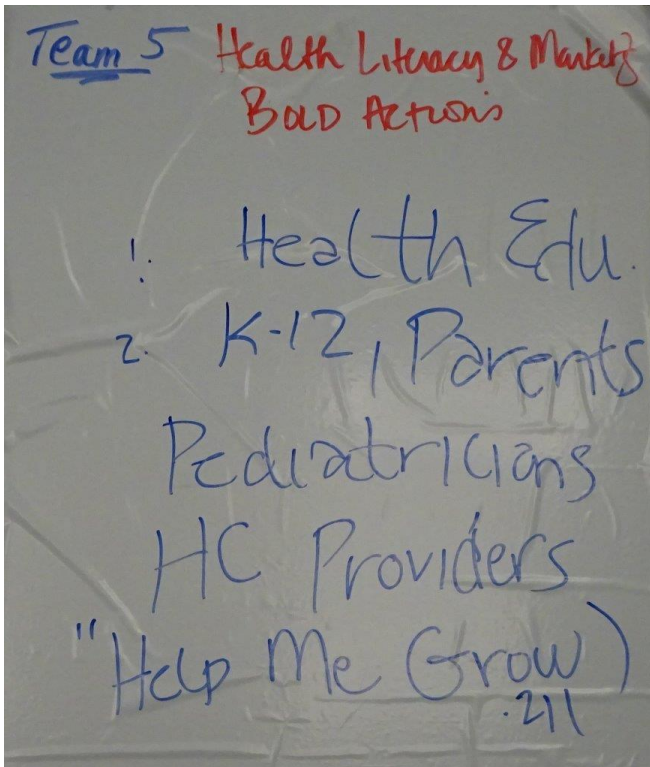 Team 5 Health Literacy & Marketg
BOLD ACTIONS
1. Health Edu.
2. K-12, Parents
Pediatricians
HC Providers
"Help Me Grow)
.211